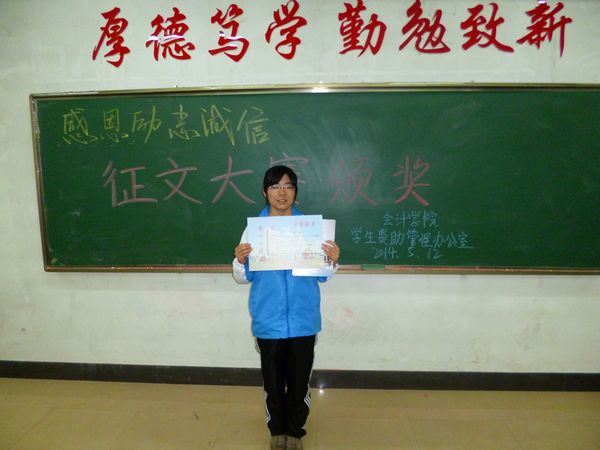 厚德笃学 勤勉致新
感恩励志诚信
征文大赛颁奖
会计学院
学生资助管理办公室
2014.5.12